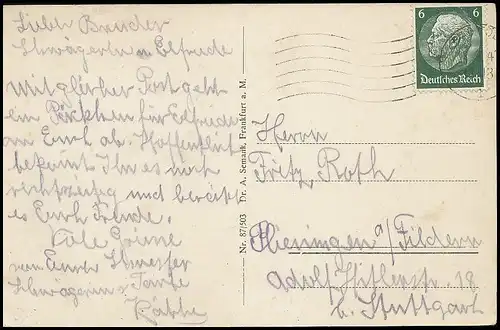 Lieber Bruder
Schwägerin u Elfriede
Mit gleicher Post geht
ein Päckchen für Elfriede
an Euch ab. Hoffentlich
bekommt Ihr es noch
rechtzeitig und bereitet
es Euch Freude.
Viele Grüße
von Eurer Schwester
Schwägerin u Tante
Käthe
Nr. 87/503 Dr. A. Semank, Frankfurt a. M.
6 6
Deutsches Reich
Herrn
Fritz Roth
Plieningen a/Fildern
Adolf Hitlerstr 18
b. Stuttgart